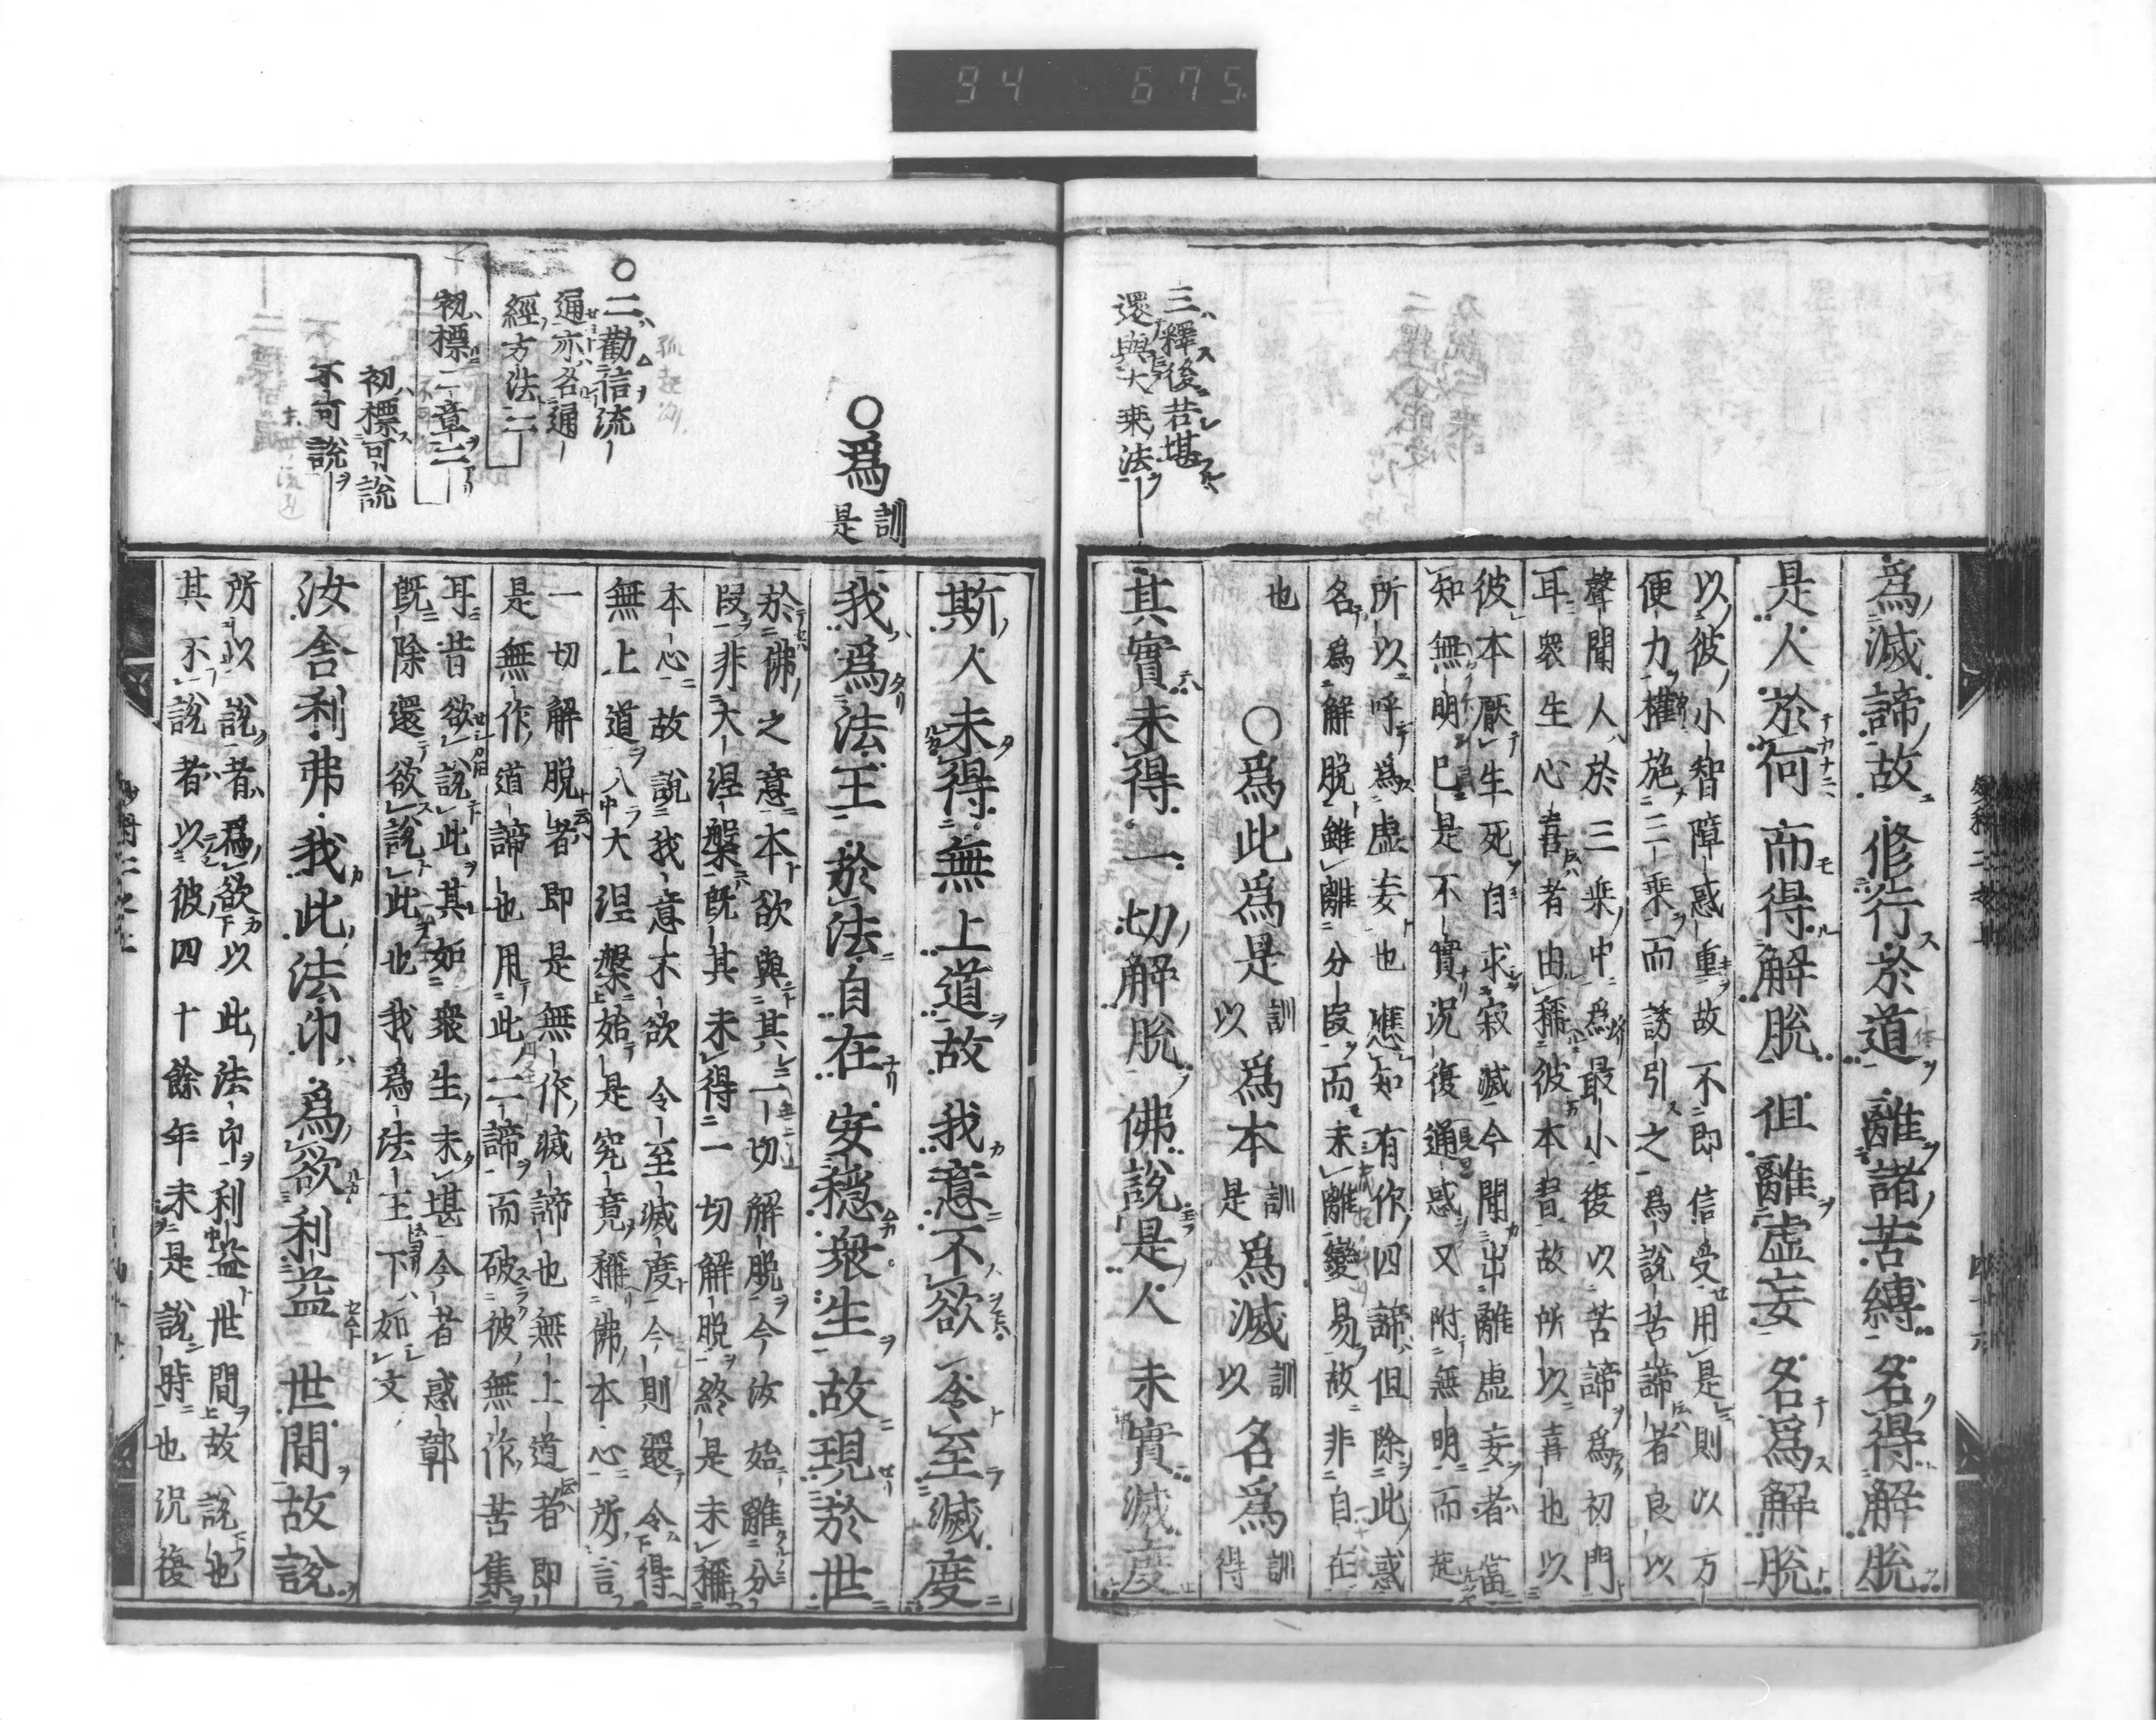 94 675
三釋後若堪
還與大乘法
爲滅諦故修行於道離諸苦縛名得解脫
是人於何而得解脫但離虛妄名爲解脫
以彼小智障惑重故不即信受用是則以方
便力權施三乘而誘引之爲說苦諦者良以
聲聞人於三乘中爲最小復以苦諦爲初門
耳衆生心喜者由稱彼本習故所以喜也以
彼本厭生死自求寂滅今聞出離虛妄者當
知無明已是不實況復通惑又附無明而起
所以呼爲虛妄也應知有作四諦但除此惑
名爲解脫雖離分段而未離變易故非自在
也
○爲此爲是訓以爲本訓是爲滅訓以名爲訓得
其實未得一切解脫佛說是人未實滅度
○爲訓是
○二勸信流
通亦名通
經方法二
初標二章二
初標可說
不可說
斯人未得無上道故我意不欲令至滅度
我爲法王於法自在安穩衆生故現於世
於佛之意本欲與其一切解脫今汝始離分
段非大涅槃既其未得一切解脫終是未稱
本心故說我意不欲令至滅度今則還令得
無上道入大涅槃始是究竟稱佛本心所言
一切解脫者即是無作滅諦也無上道者即
是無作道諦也用此二諦而破彼無作苦集
耳昔欲說此其如衆生未堪今者惑鄣
既除還欲說此也我爲法王下如文
汝舍利弗我此法印爲欲利益世間故說
所以說者爲欲以此法印利益世間故說也
其不說者以彼四十餘年未是說時也況復